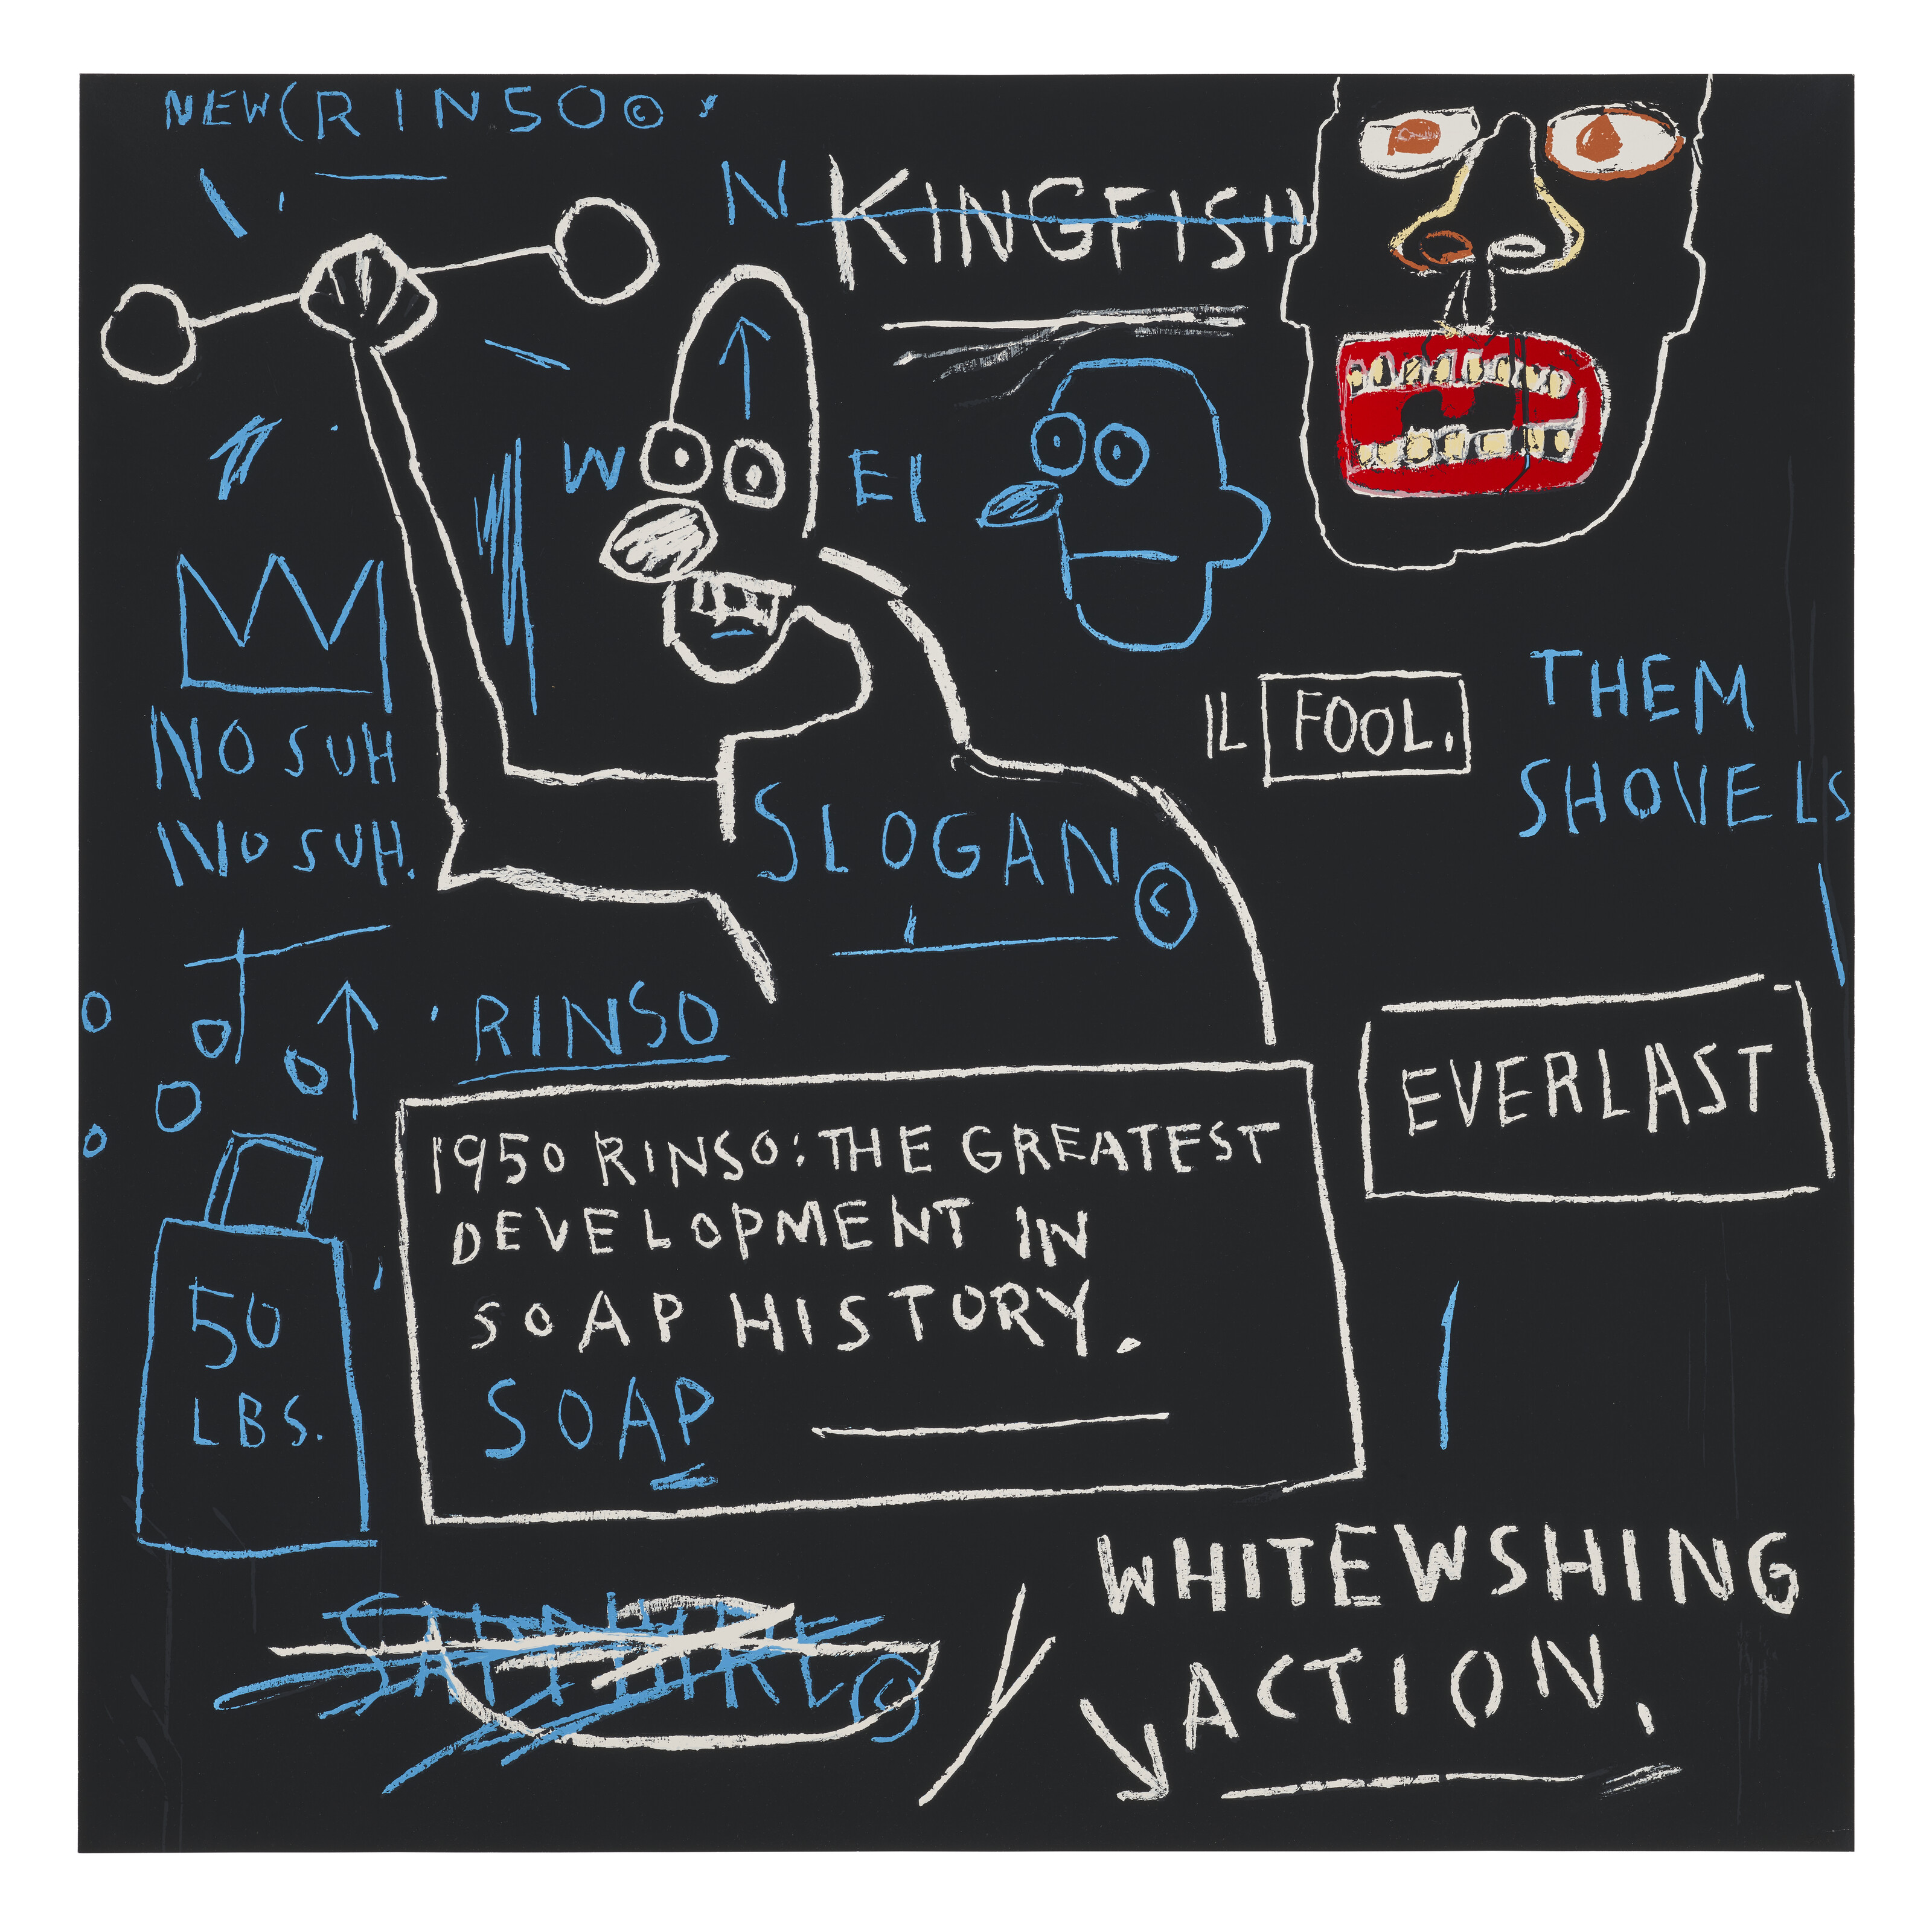 NEW (RINSO©
N KINGFISH
W EI
NO SUH
NO SUH.
SLOGAN©
IL FOOL.
THEM
SHOVELS
RINSO
EVERLAST
1950 RINSO: THE GREATEST
DEVELOPMENT IN
SOAP HISTORY.
SOAP
50
LBS.
SAPPHIRE©
WHITEWSHING
ACTION.